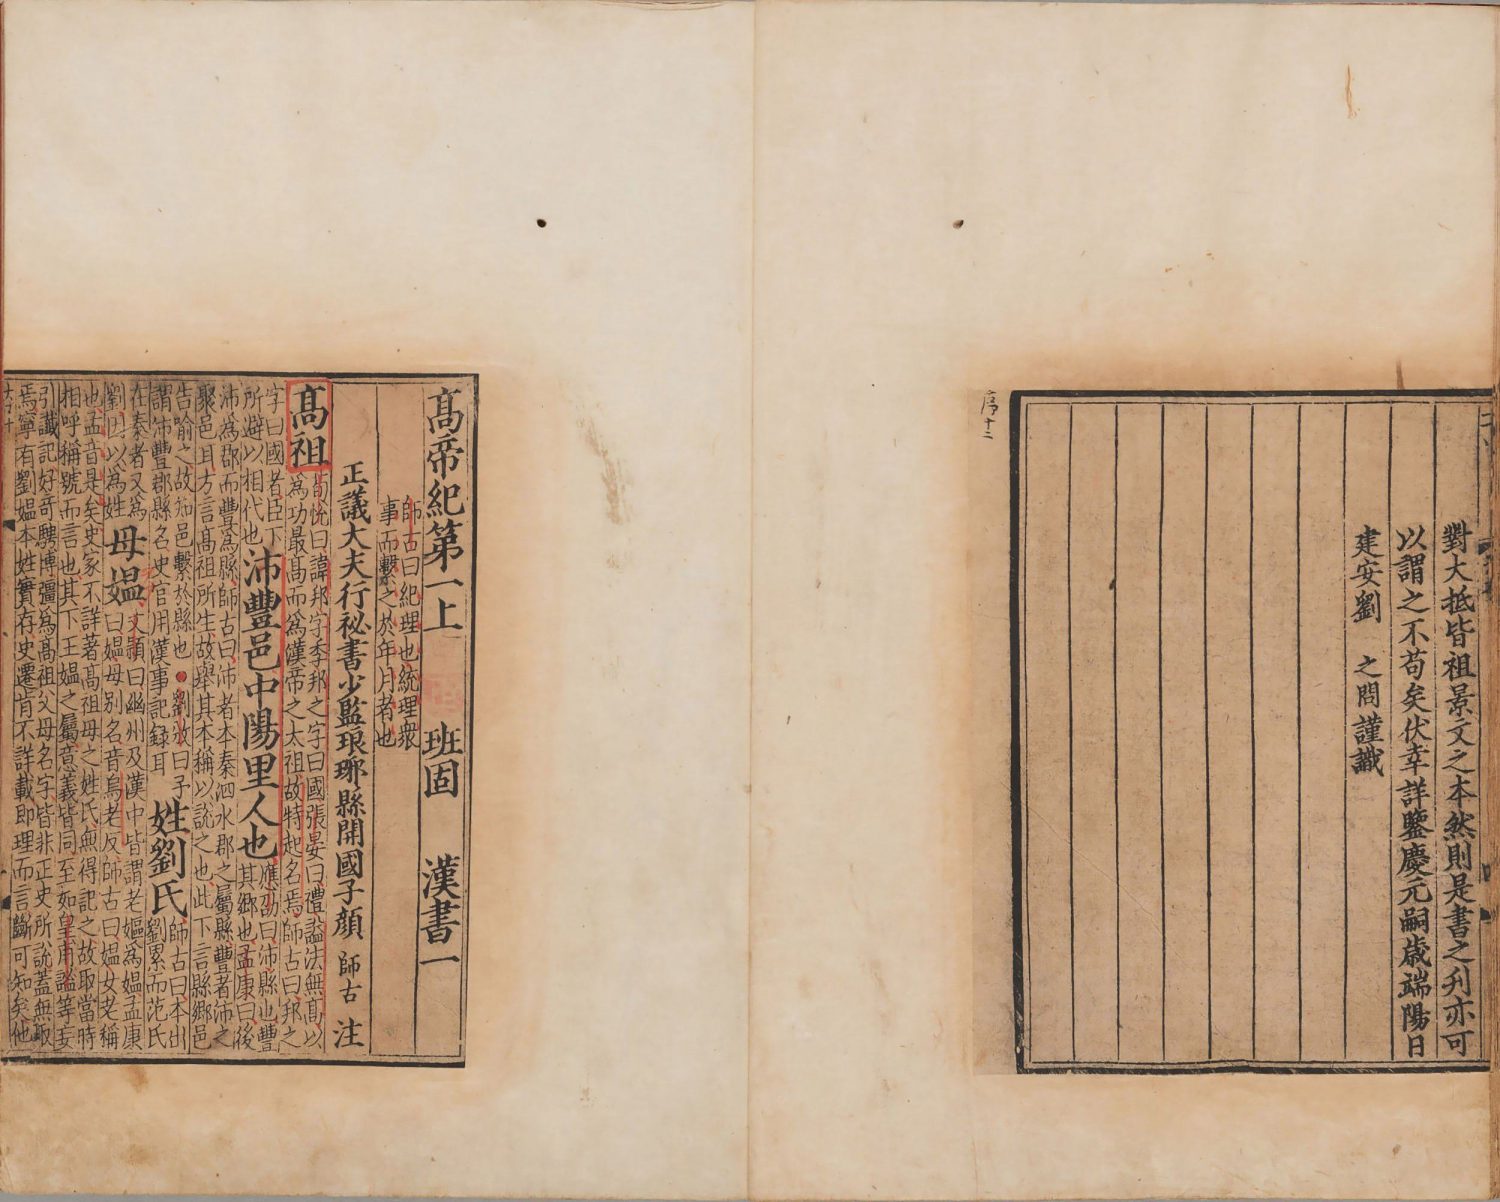 對大抵皆祖景文之本然則是書之刋亦可
以謂之不苟矣伏幸詳鑒慶元嗣歲端陽日
建安劉 之問謹識
序十二
高帝紀第一上 班固 漢書一
師古曰紀理也統理衆
事而繫之於年月者也
正議大夫行祕書少監琅琊縣開國子顏 師古 注
高祖
荀悅曰諱邦字季邦之字曰國張晏曰禮謚法無高以
爲功最高而爲漢帝之太祖故特起名焉師古曰邦之
字曰國者臣下
所避以相代也
沛豐邑中陽里人也
應劭曰沛縣也豐
其鄉也孟康曰後
沛爲郡而豐爲縣師古曰沛者本秦泗水郡之屬縣豐者沛之
聚邑耳方言高祖所生故舉其本稱以說之也此下言縣鄉邑
告喻之故知邑繫於縣也 劉攽曰予
謂沛豐郡縣名史官用漢事記録耳
姓劉氏
師古曰本出
劉累而范氏
在秦者又爲
劉因以爲姓
母媼
文穎曰幽州及漢中皆謂老嫗爲媼孟康
曰媼母别名音烏老反師古曰媼女老稱
也孟音是矣史家不詳著高祖母之姓氏無得記之故取當時
相呼稱號而言也其下王媼之屬意義皆同至如皇甫謐等妄
引讖記好奇騁博彊爲高祖父母名字皆非正史所說蓋無取
焉寧有劉媼本姓實存史遷肯不詳載即理而言斷可知矣他